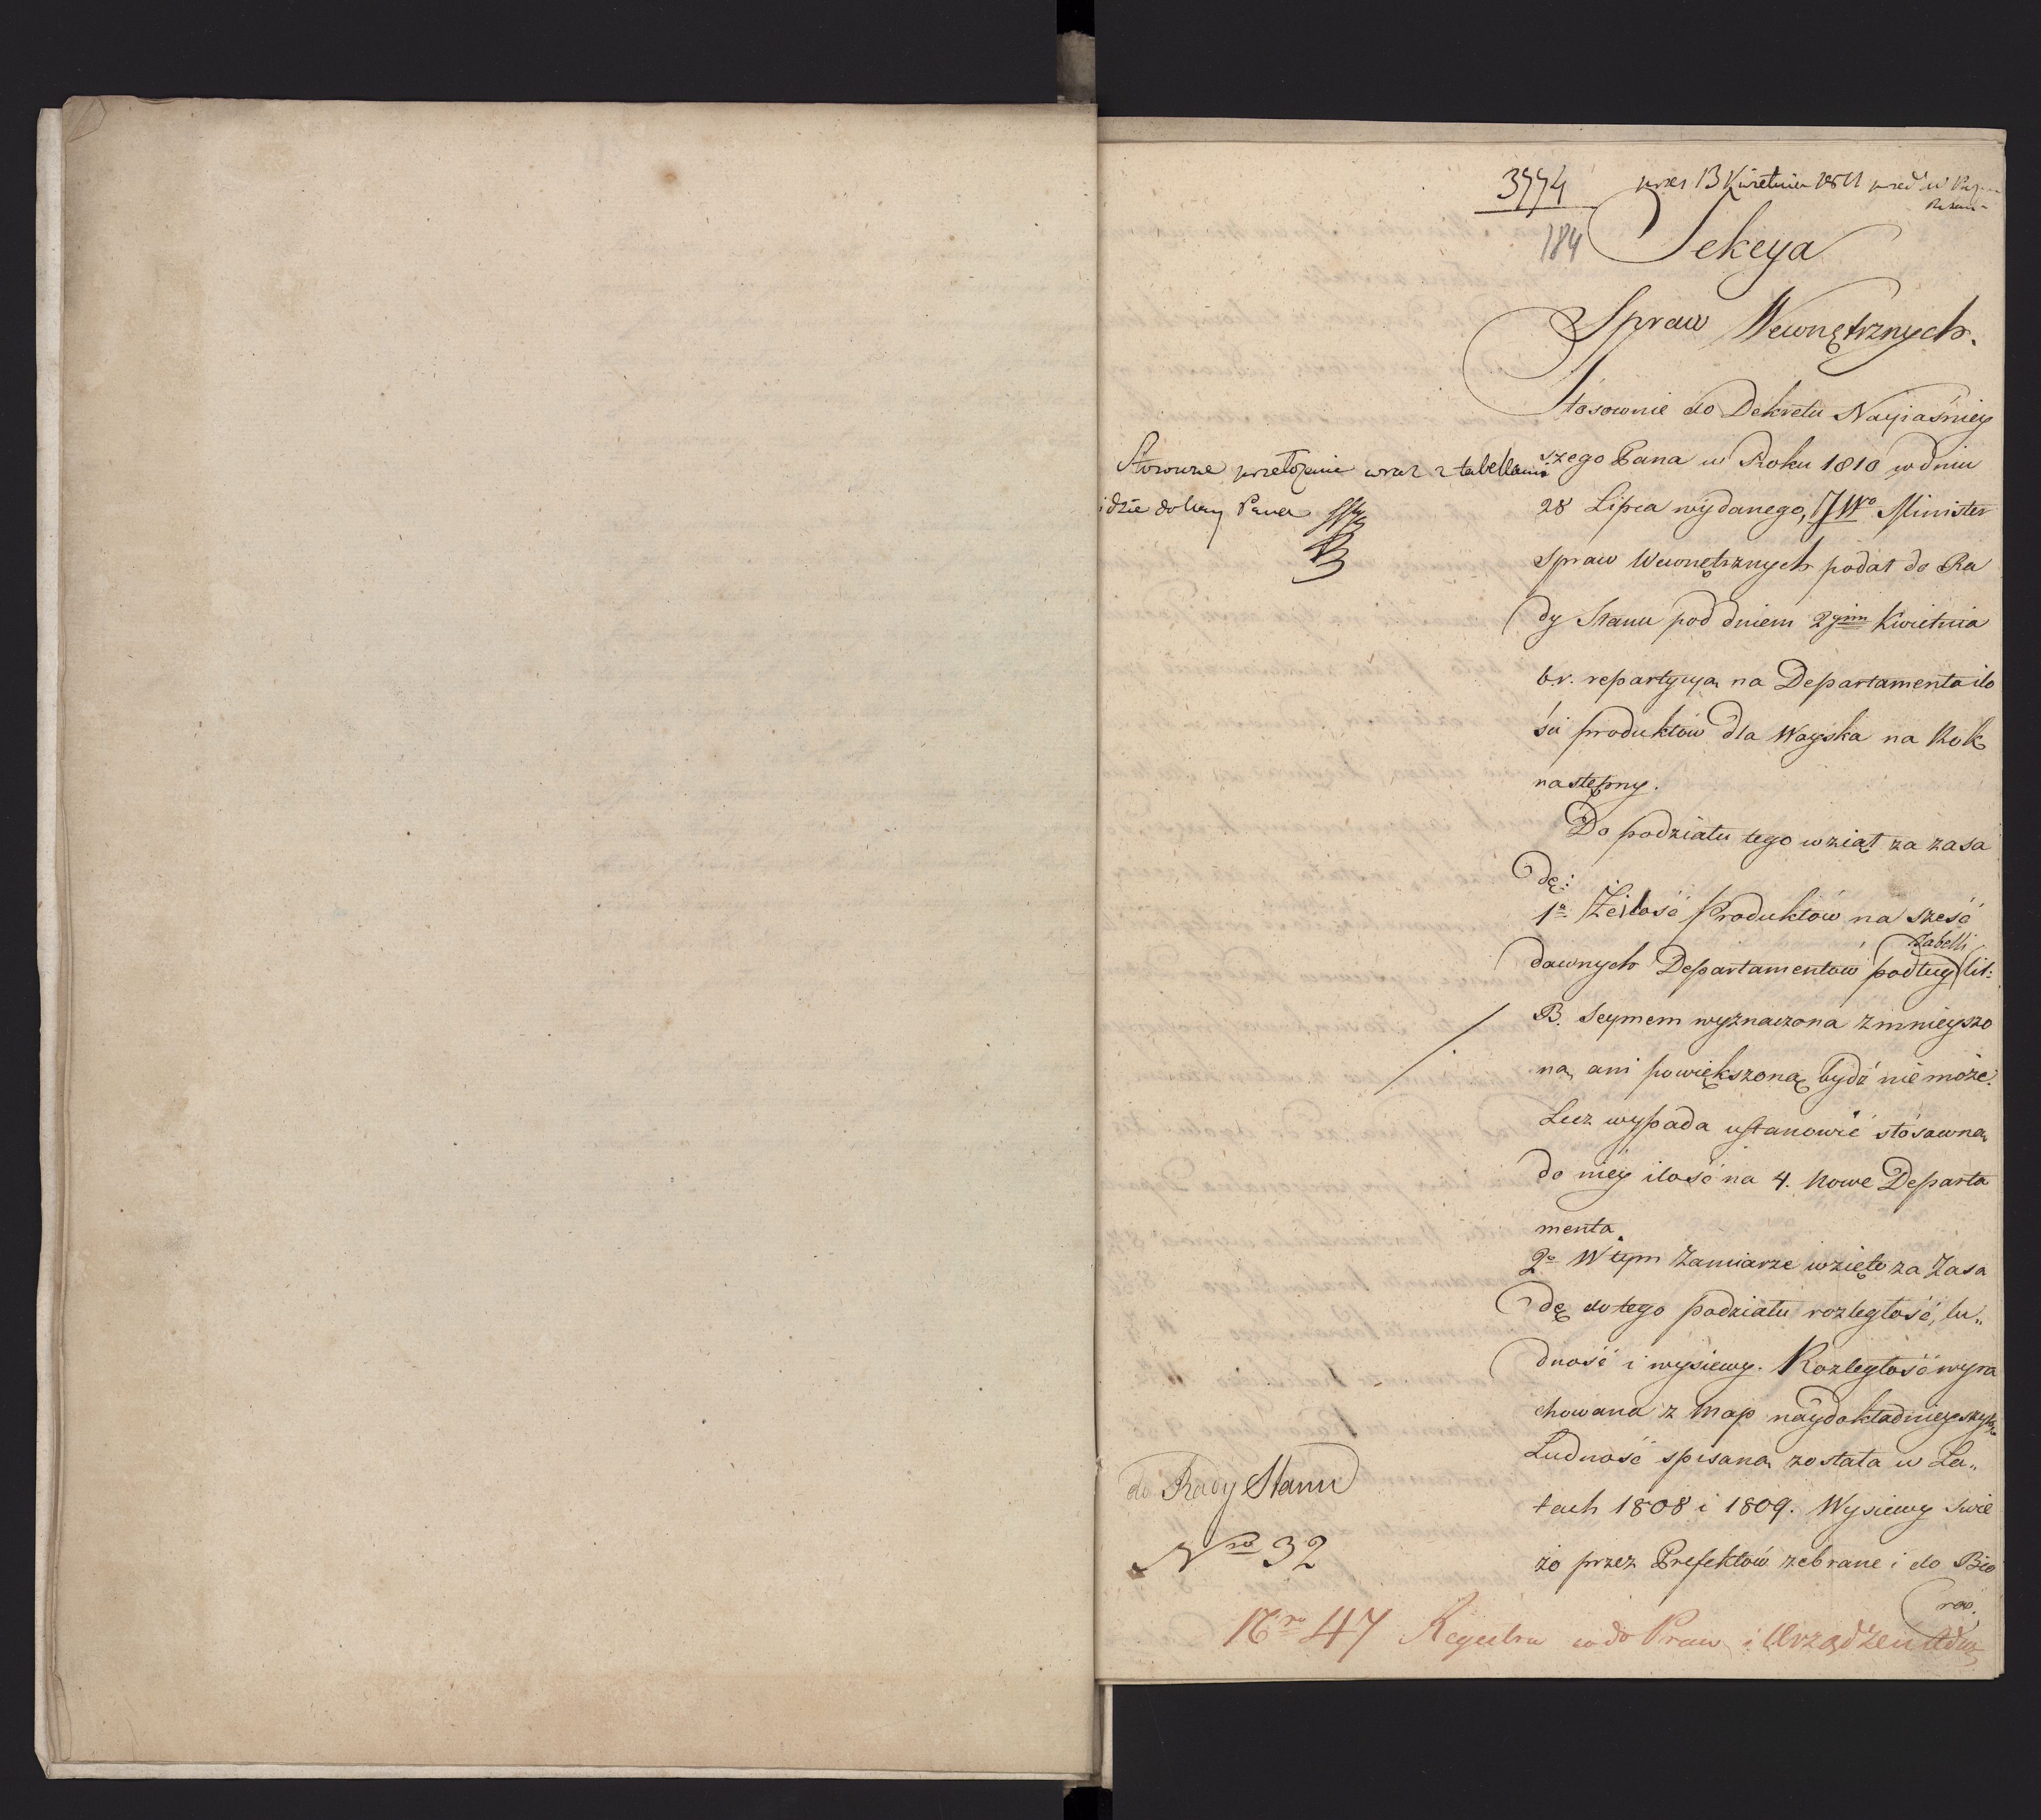 3774
13 Kwietnia 1811
184
Sekcya
Spraw Wewnętrznych.
Stosownie do Dekretu Nayiaśniey
szego Pana w Roku 1810 w dniu
28 Lipca wydanego, JW. Minister
Spraw Wewnętrznych podał do Ra
dy Stanu pod dniem 2gim Kwietnia
b.r. repartycyą na Departamenta ilo
ści produktów dla Woyska na Rok
następny.
Do podziału tego wziął za zasa
dę:
1o Że ilość Produktów na sześć
dawnych Departamentów podług Tabelli lit:
B. Seymem wyznaczona zmnieyszo
ną, ani powiększoną bydź nie może.
Lecz wypada ustanowić stósowną
do niéy ilość na 4. nowe Departa
menta.
2o W tym Zamiarze wzięto za Zasa
dę do tego podziału rozległość, lu„
dność i wysiewy. Rozległość wyra
chowana z map naydokładnieyszych
Ludność spisaną została w La„
tach 1808 i 1809. Wysiewy świé
żo przez Prefektów zebrane i do Bió
rów.
Stosowne przełożenie wraz z tabellami
idzie do Pana
do Rady Stanu
Nro 32
Nro 47 Regestra do Praw i Urządzeń